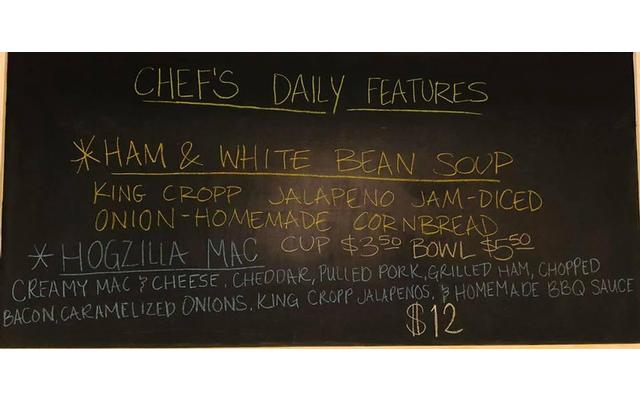 CHEF'S DAILY FEATURES
*HAM & WHITE BEAN SOUP
KING CROPP JALAPENO JAM-DICED
ONION-HOMEMADE CORNBREAD
CUP $3.50 BOWL $5.50
* HOGZILLA MAC
CREAMY MAC & CHEESE, CHEDDAR, PULLED PORK, GRILLED HAM, CHOPPED
BACON, CARAMELIZED ONIONS, KING CROPP JALAPENOS, & HOMEMADE BBQ SAUCE
$12